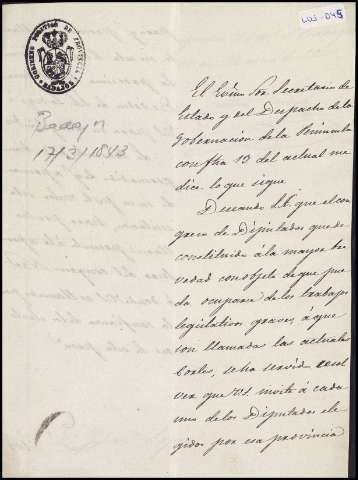 GOBIERNO POLITICO DE PROVINCIA
Badajoz
17/3/1843
El Exmo Sor Secretario de
Estado y del Despacho de la
Gobernacion de la Peninsula
con fha 13 del actual me
dice lo que sigue
Deseando S.A. que el con
greso de Diputados quede
constituido á la mayor bre
vedad con objeto de que pue
da ocuparse de los trabajos
legislativos graves, á que
son llamadas las actuales
Cortes, se ha servido resol
ver que V.S. invite á cada
uno de los Diputados ele
gidos por esa provincia